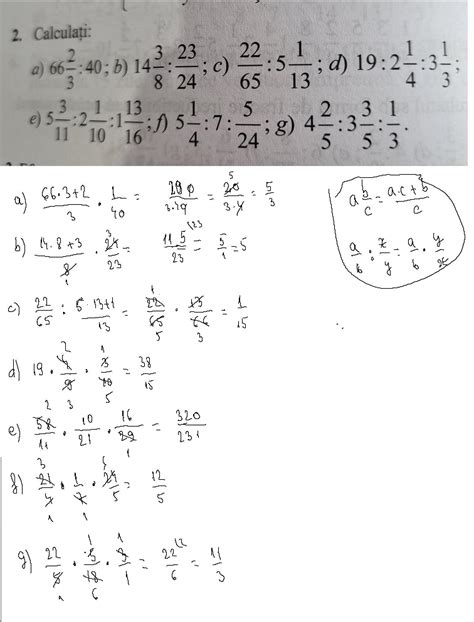 2. Calculați:
a) 66 2/3 : 40; b) 14 3/8 : 23/24; c) 22/65 : 5 1/13; d) 19 : 2 1/4 : 3 1/3;
e) 5 3/11 : 2 1/10 : 1 13/16; f) 5 1/4 : 7 : 5/24; g) 4 2/5 : 3 3/5 : 1/3.
a) (66·3+2)/3 · 1/40 = 200/(3·20) = 20/(3·4) = 5/3
a b/c = (a·c+b)/c
b) (14·8+3)/8 · 24/23 = 115/23 = 5/1 = 5
a/b : x/y = a/b · y/x
c) 22/65 : (5·13+1)/13 = 22/65 · 13/66 = 1/15
d) 19 · 4/9 · 3/10 = 38/15
e) 58/11 · 10/21 · 16/29 = 320/231
f) 21/4 · 1/7 · 24/5 = 12/5
g) 22/5 · 5/18 · 3/1 = 22/6 = 11/3